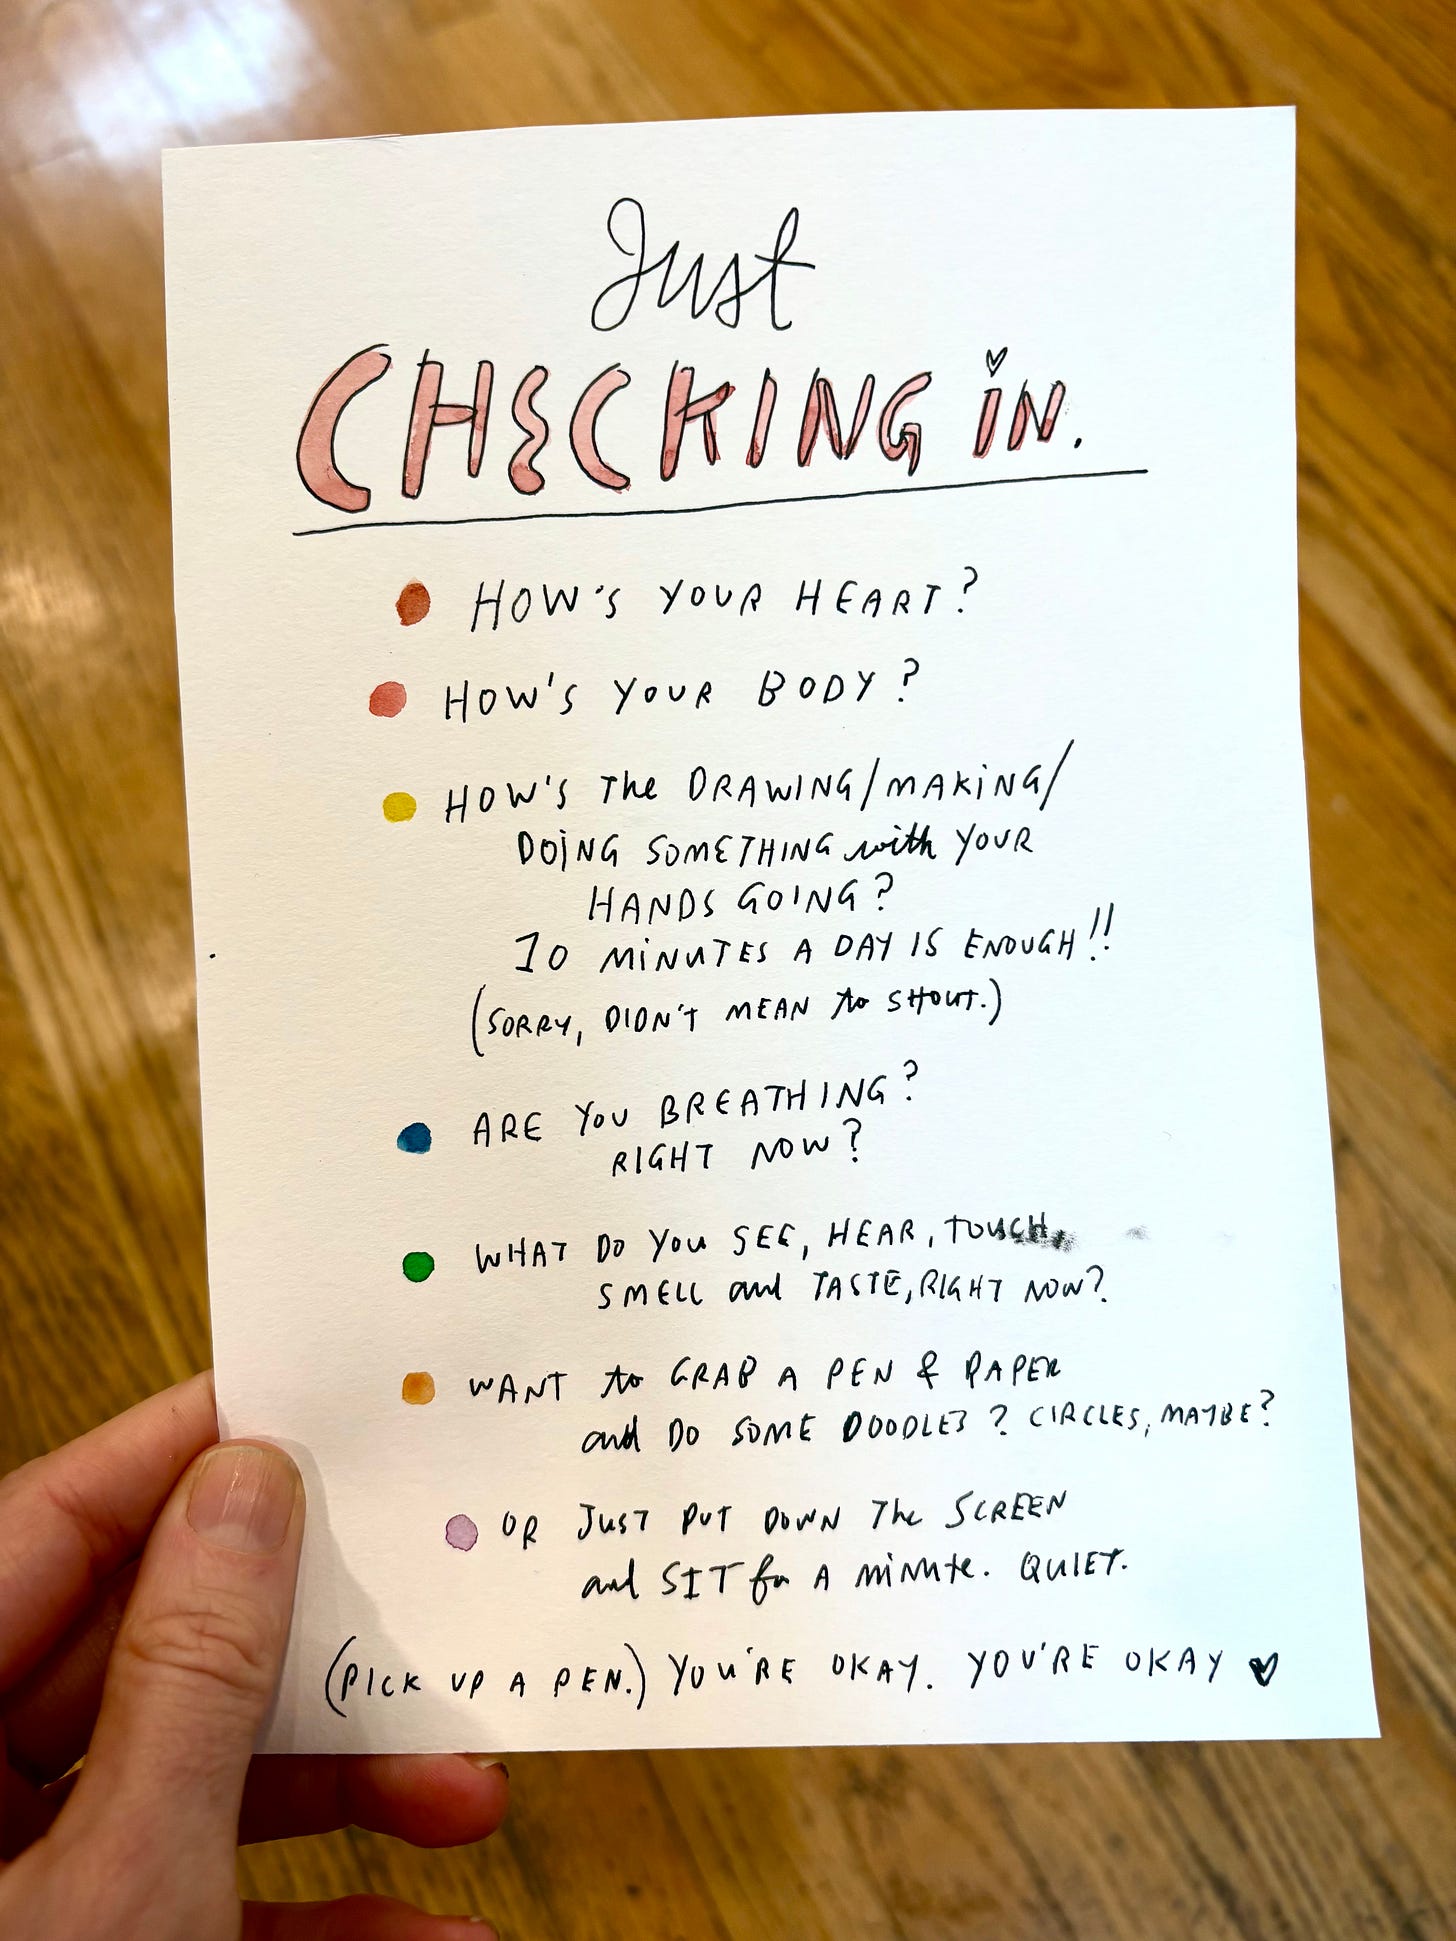 Just
CHECKING iN.
HOW'S YOUR HEART?
HOW'S YOUR BODY?
HOW'S The DRAWING/MAKiNG/
DOiNG SOMETHING with YOUR
HANDS GOING?
10 MiNUTES A DAY IS ENOUGH!!
(SORRY, DIDN'T MEAN to SHOUT.)
ARE YOU BREATHING?
RIGHT NOW?
WHAT DO YOU SEE, HEAR, TOUCH,
SMELL and TASTE, RIGHT NOW?
WANT to GRAB A PEN & PAPER
and DO SOME DOODLES? CIRCLES, MAYBE?
OR JUST PUT DOWN The SCREEN
and SIT for A MiNUte. QUIET.
(PICK UP A PEN.) YOU'RE OKAY. YOU'RE OKAY ♥